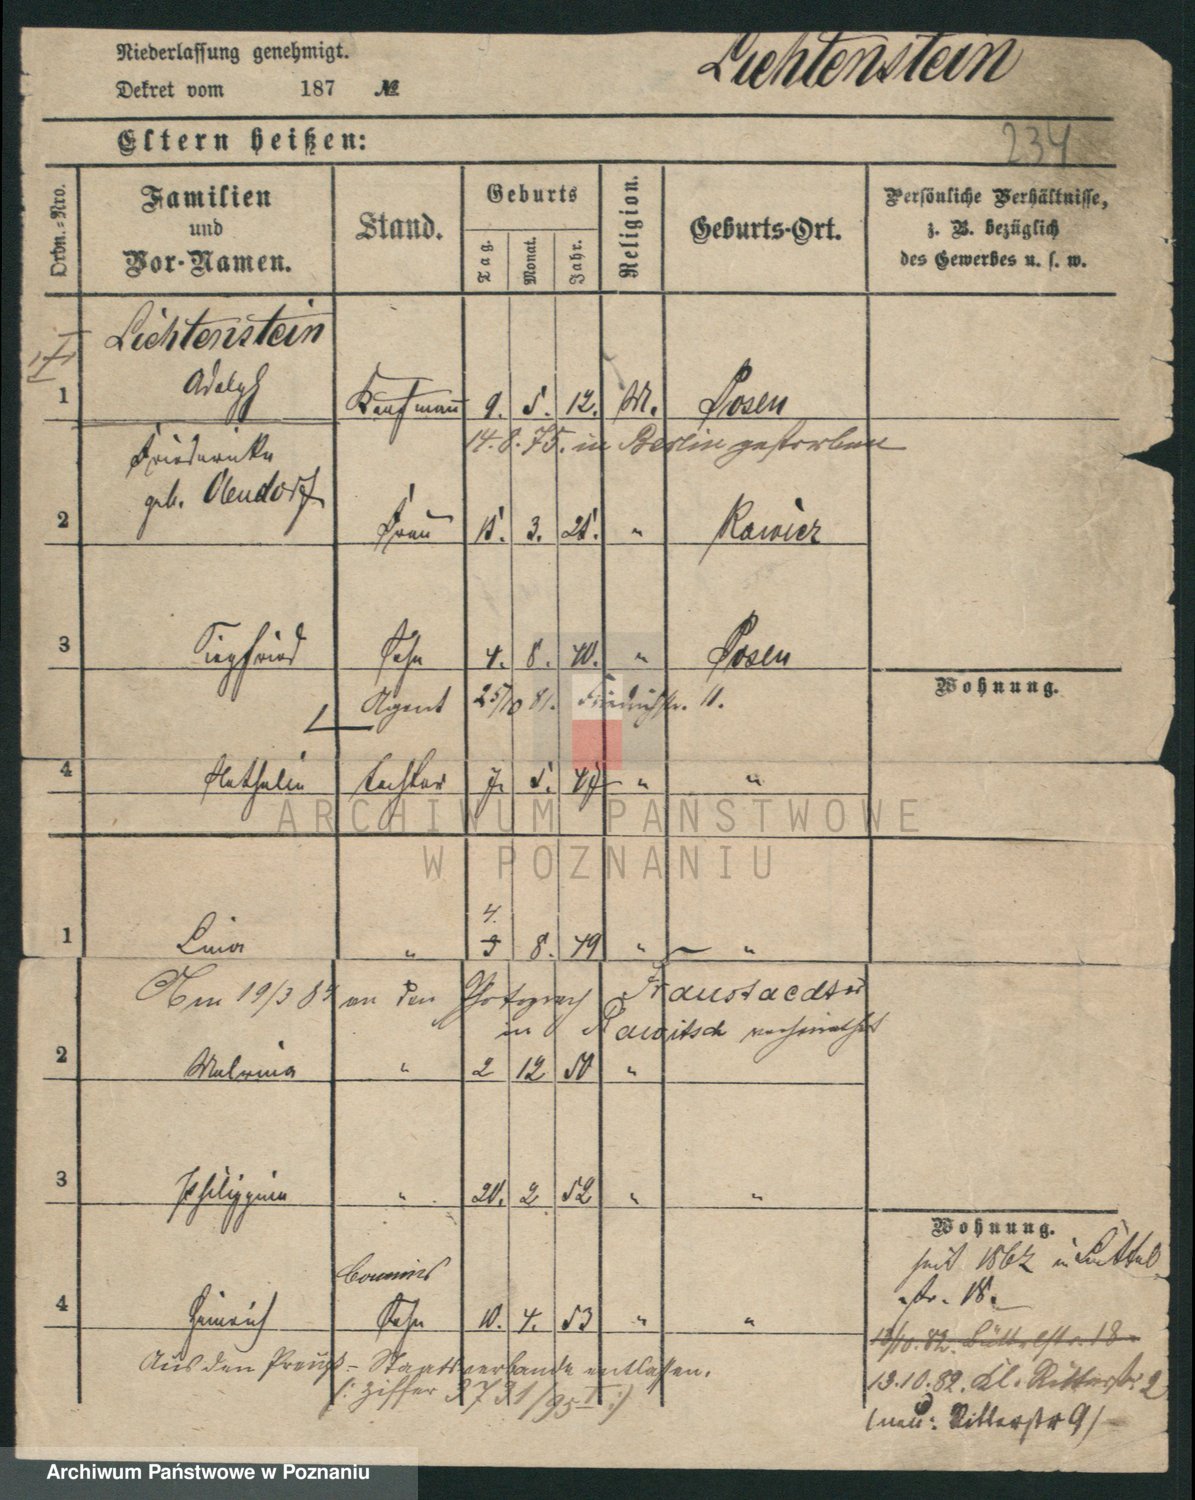 Niederlassung genehmigt.
Dekret vom 187 №
Lichtenstein
Eltern heißen:
234
Ordn.-Nro.
Familien
und
Vor-Namen.
Stand.
Geburts
Tag.
Monat.
Jahr.
Religion.
Geburts-Ort.
Persönliche Verhältnisse,
z. B. bezüglich
des Gewerbes u. s. w.
Lichtenstein
1 Adolph Kaufmann 9. 5. 12. M. Posen
14.8.75. in Berlin gestorben
Friederike
geb. Obendorf
2 Frau 15. 3. 21. " Rawicz
3 Siegfried Sohn 4. 8. 40. " Posen
Agent 25/10 81. Friedrichstr. 11.
Wohnung.
4 Nathalie Tochter 7. 5. 47 " "
ARCHIWUM PAŃSTWOWE
W POZNANIU
4.
1 Lina " 5 8. 49 " "
Am 19/3 84 an den Photograph Fraustaedter
in Rawitsch verheirathet
2 Malwina " 2 12 50 "
3 Philippine " 20. 2 52 " "
Wohnung.
seit 1862
str. 18.
Commis
4 Heinrich Sohn 10. 4. 53 " "
13/10.82. Büttelstr. 18
13.10.82. Kl. Ritterstr. 2
(neu: Ritterstr 9)
Aus dem Preuß. Staatsverbande entlassen.
(: Ziffer 3731/95 I :)
Archiwum Państwowe w Poznaniu